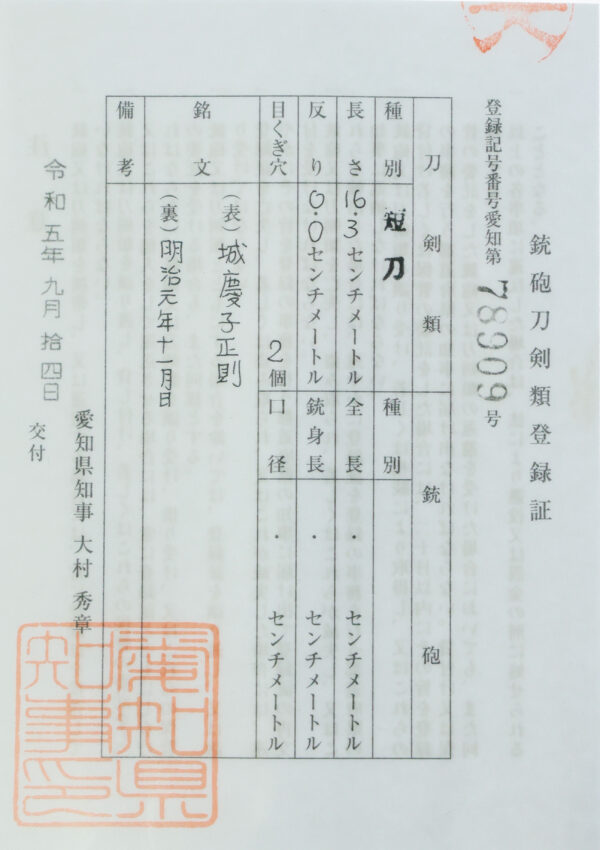 銃砲刀剣類登録証
登録記号番号愛知第 78909 号
刀剣類
銃砲
種別 短刀
種別
長さ 16.3センチメートル
全長 ・ センチメートル
反り 0.0センチメートル
銃身長 ・ センチメートル
目くぎ穴 2個
口径 ・ センチメートル
銘文
(表)城慶子正則
(裏)明治元年十一月日
備考
令和五年九月拾四日 交付
愛知県知事 大村 秀章
愛知県知事印